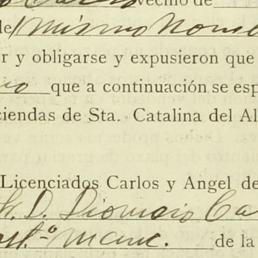 vecino de
de mismo nom
r y obligarse y expusieron que
que a continuación se esp
ciendas de Sta. Catalina del Al
Licenciados Carlos y Angel de
D. Dionicio Ca
de la